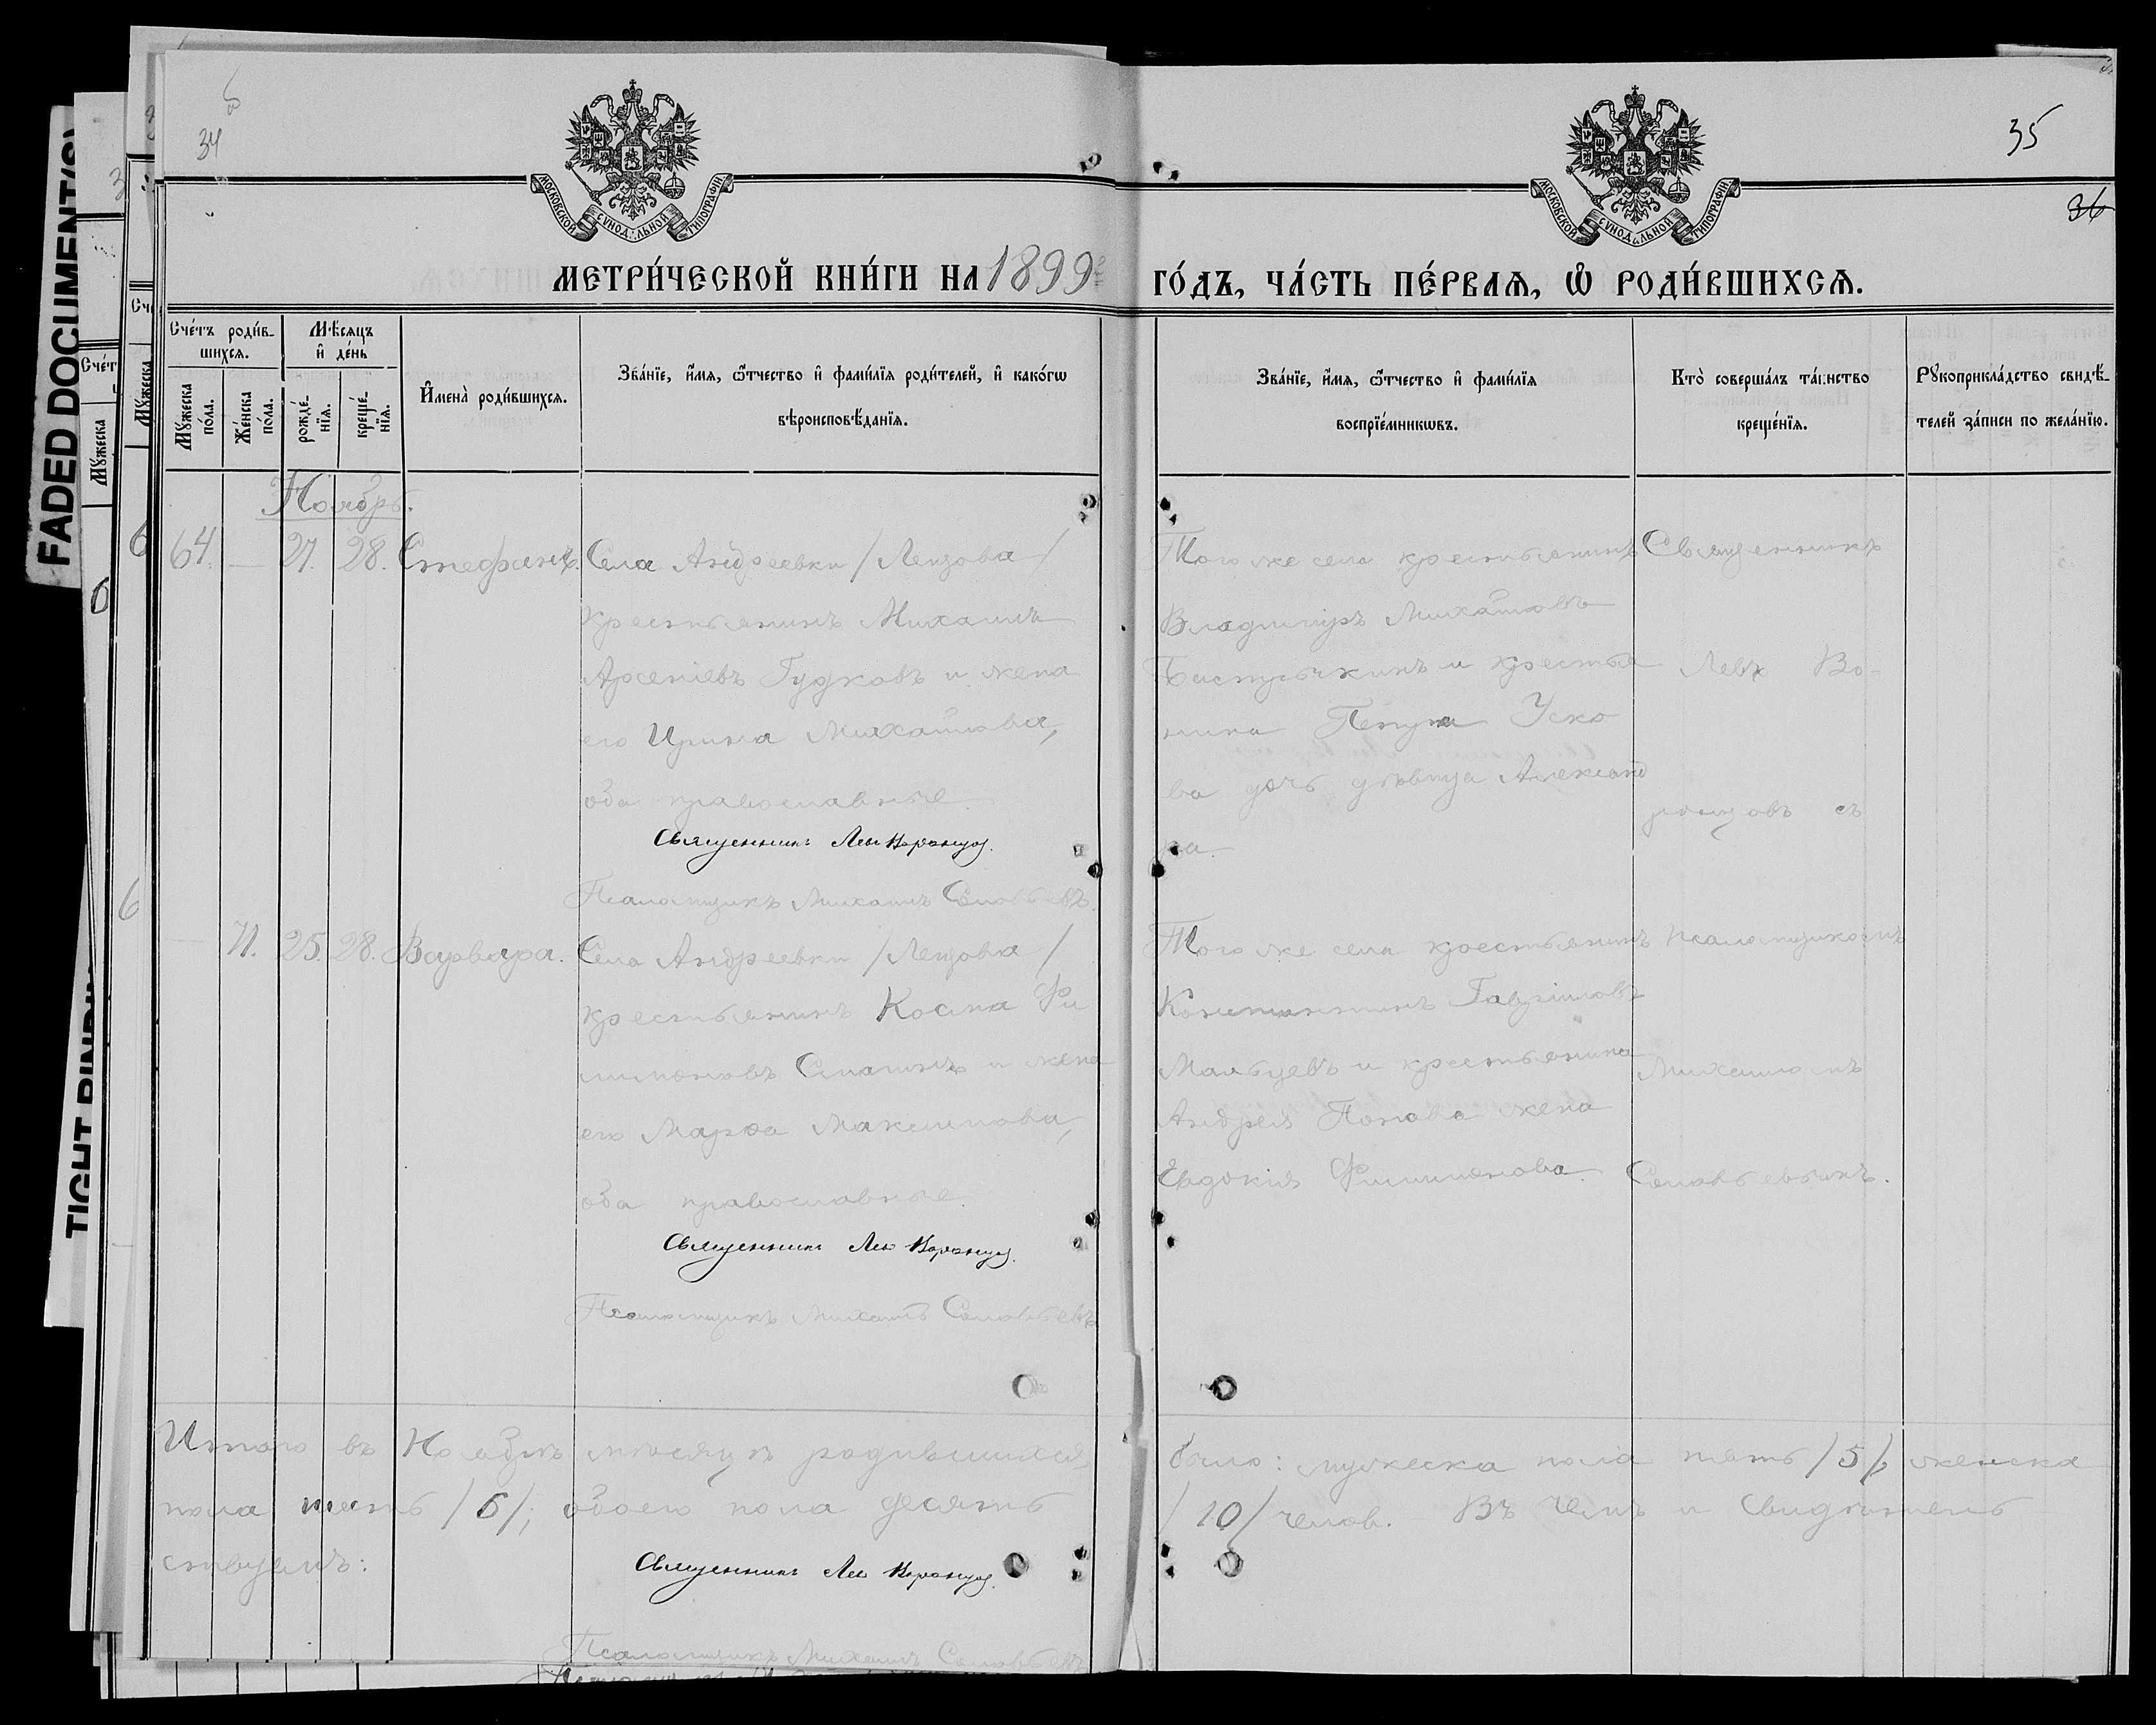 FADED DOCUMENT(S)
34
35
36
МОСКОВСКОЙ СѴНОДАЛЬНОЙ ТИПОГРАФІИ
МОСКОВСКОЙ СѴНОДАЛЬНОЙ ТИПОГРАФІИ
МЕТРИ́ЧЕСКОЙ КНИ́ГИ НА 1899
ГО́ДЪ, ЧА́СТЬ ПЕ́РВАѦ, Ѡ РОДИ́ВШИХСѦ.
Сче́тъ роди́в-
шихся.
Мꙋ́жеска
по́ла.
Же́нска
по́ла.
Мѣ́сяцъ
и҆ де́нь
рожде́-
нїя.
креще́-
нїя.
И҆мена̀ роди́вшихся.
Зва́нїе, и҆́мя, ѻ҆́тчество и҆ фами́лїя роди́телей, и҆ како́гѡ
вѣроисповѣ́данїя.
Зва́нїе, и҆́мя, ѻ҆́тчество и҆ фами́лїя
воспрїе́мникѡвъ.
Кто̀ соверша́лъ та́инство
креще́нїя.
Рꙋкоприкла́дство свидѣ́-
телей за́писи по жела́нїю.
Ноябрь.
64. — 27. 28. Стефанъ.
Села Андреевки /Лещова/
крестьянинъ Михаилъ
Арсеніевъ Гудковъ и жена
его Ирина Михайлова,
оба православные.
Священникъ Левъ Воронцов.
Псаломщикъ Михаилъ Соловьевъ.
Того же села крестьянинъ
Владимиръ Михайловъ
и крестья
нина Петра Уско
ва дочь дѣвица Александ
ра.
Священникъ
Левъ Во-
ронцовъ съ
71. 25. 28. Варвара.
Села Андреевки /Лещова/
крестьянинъ Косма Фи
лимоновъ и жена
его Марѳа Максимова,
оба православные.
Священникъ Лев Воронцов.
Псаломщикъ Михаилъ Соловьевъ
Того же села крестьянинъ
Константинъ Гавріиловъ
Мальцевъ и крестьянина
Андрея Попова жена
Евдокія Филимонова.
псаломщикомъ
Михаиломъ
Соловьевымъ.
Итого въ Ноябрѣ мѣсяцѣ родившихся
было: мужеска пола пять /5/, женска
пола пять /5/; обоего пола десять
/10/ челов. Въ чемъ и свидѣтель
ствуемъ:
Священникъ Лев Воронцов.
Псаломщикъ Михаилъ Соловьевъ